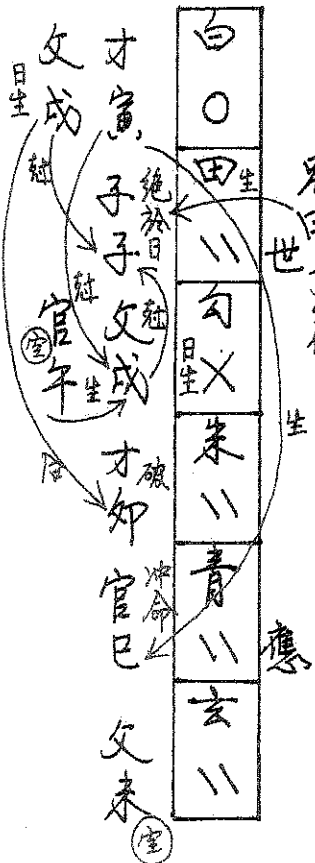 白 ○
田 〃 生 世
勾 × 日生
朱 〃
青 〃 應
玄 〃
生
才寅
子子 絕於日
父戌 尅
才卯 破
官巳 沖命
父未 空
父戌 日生
尅
尅
官午 空 生
合